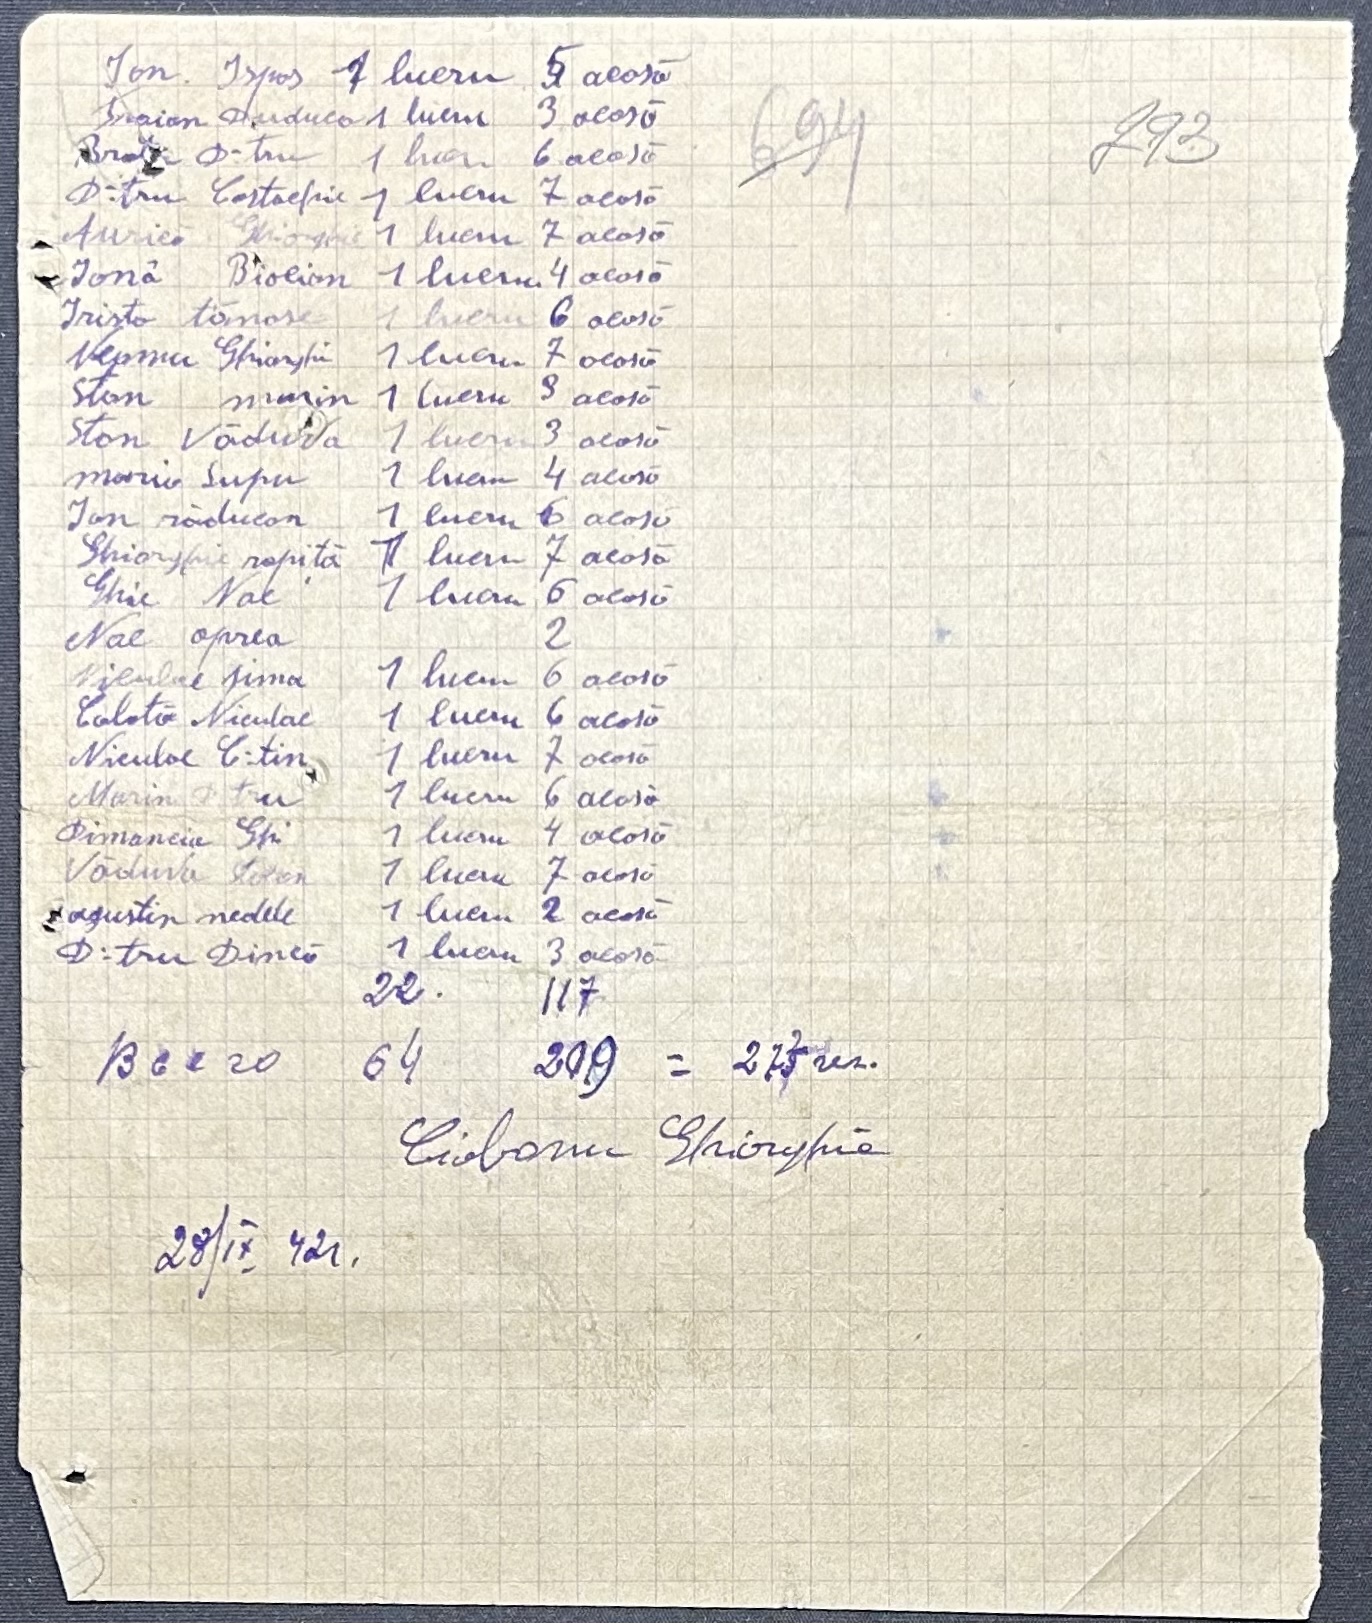 Ion Ispas 1 lucru 5 acosă
694
293
Traian Duduca 1 lucru 3 acosă
D-tru 1 lucru 6 acosă
D-tru Costachie 1 lucru 7 acosă
Aurică Ghiorghie 1 lucru 7 acosă
Ionă 1 lucru 4 acosă
Tristo tănase 1 lucru 6 acosă
Ghiorghi 1 lucru 7 acosă
Stan marin 1 lucru 3 acosă
Stan Văduva 1 lucru 3 acosă
maria Lupu 1 lucru 4 acosă
Ion răducan 1 lucru 6 acosă
Ghiorghie rapită 1 lucru 7 acosă
Ghie Nae 1 lucru 6 acosă
Nae oprea 2
Niculae sima 1 lucru 6 acosă
Calotă Niculae 1 lucru 6 acosă
Niculae C-tin 1 lucru 7 acosă
Marin D-tru 1 lucru 6 acosă
Dimancia Ghi 1 lucru 4 acosă
Văduva 1 lucru 7 acosă
agustin nedele 1 lucru 2 acosă
D-tru Dincă 1 lucru 3 acosă
22. 117
Всего 64 209 = чел.
Ciobanu Ghiorghie
28/IX 42г.